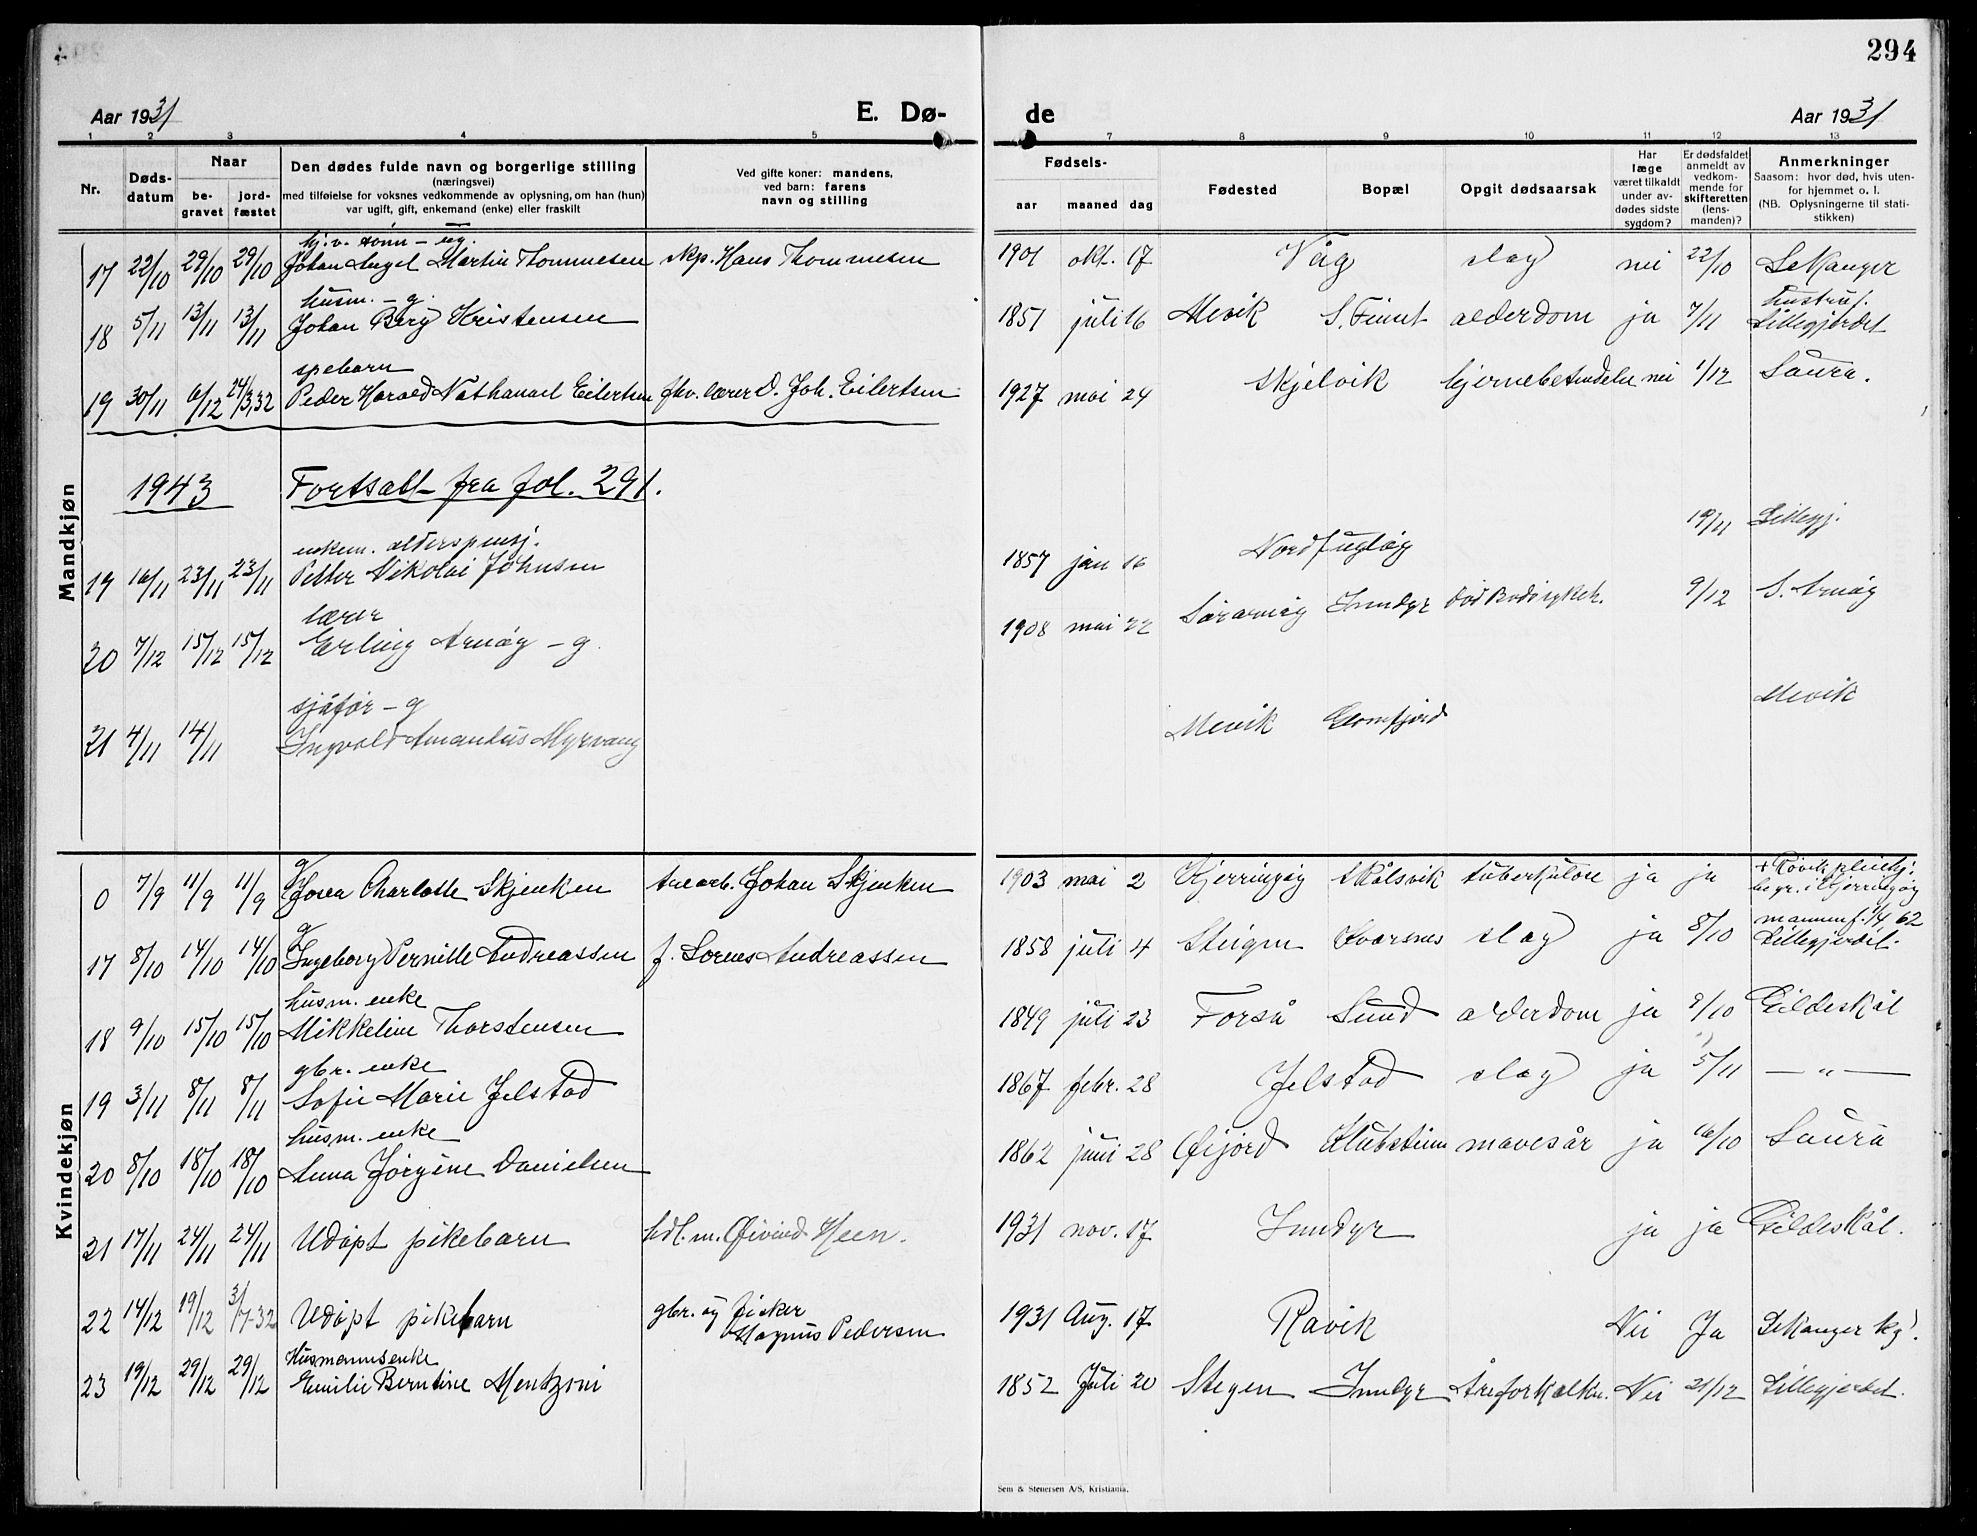 294
Aar 1931 E. Dø- de Aar 1931
1 2 3 4 5 7 8 9 10 11 12 13
Nr.
Døds-
datum
Naar
be-
gravet
jord-
fæstet
Den dødes fulde navn og borgerlige stilling
(næringsvei)
med tilføielse for voksnes vedkommende av oplysning, om han (hun)
var ugift, gift, enkemand (enke) eller fraskilt
Ved gifte koner: mandens,
ved barn: farens
navn og stilling
Fødsels-
aar maaned dag
Fødested
Bopæl
Opgit dødsaarsak
Har
læge
været tilkaldt
under av-
dødes sidste
sygdom?
Er dødsfaldet
anmeldt av
vedkom-
mende for
skifteretten
(lens-
manden)?
Anmerkninger
Saasom: hvor død, hvis uten-
for hjemmet o. l.
(NB. Oplysningerne til stati-
stikken)
Mandkjøn
hj.v. sønn - ug.
17 22/10 29/10 29/10 Johan Angel Martin Thommesen skp. Hans Thommesen 1901 okt. 17 Våg slag nei 22/10 Lekanger
husm. - g. hustru f.
18 5/11 13/11 13/11 Johan Berg Kristensen 1851 juli 16 Mevik S. Finnt alderdom ja 7/11 Lillegjerdet
spebarn
19 30/11 6/12 24/3,32 Peder Harald Nathanael Eilertsen fhv. lærer D. Joh. Eilertsen 1927 mai 24 Skjelvik hjernebetendelse nei 1/12 Saura.
1943 Fortsatt fra fol. 291.
enkem. alderspensj.
19 16/11 23/11 23/11 Petter Nikolai Johnsen 1857 jan 16 Nordfugløy 19/11 Lillegj.
lærer
20 7/12 15/12 15/12 Erling Arnøy - g. 1908 mai 22 Sørarnøy Inndyr død Bodø sykeh. 9/12 S. Arnøy
sjåfør - g
21 4/11 14/11 Ingvald Amandus Myrvang Mevik Glomfjord Mevik
Kvindekjøn
g
0 7/9 11/9 11/9 Jova Charlotte Skjenken anl.arb. Johan Skjenken 1903 mai 2 Kjerringøy Skålsvik tuberkulose ja ja + Røvik pleiehj.
begr. i Kjerringøy
g mannen f. 1/4 62
17 8/10 14/10 14/10 Ingeborg Pernille Andreassen f. Sornes Andreassen 1858 juli 4 Steigen Kvarsnes slag ja 8/10 Lillegjerdet.
husm. enke
18 9/10 15/10 15/10 Mikkeline Thorstensen 1849 juli 23 Forså Sund alderdom ja 9/10 Gildeskål
gbr. enke
19 3/11 8/11 8/11 Sofie Marie Jelstad 1867 febr. 28 Jelstad slag ja 5/11 — „ —
husm. enke
20 8/10 18/10 18/10 Anna Jørgine Danielsen 1862 juni 28 Øijord Klubstinn mavesår ja 16/10 Saura
21 17/11 24/11 24/11 Udøpt pikebarn hdl.m. Øivind Heen. 1931 nov. 17 Inndyr ja ja Gildeskål.
gbr. og fisker
22 14/12 19/12 3/7-32 Udøpt pikebarn Magnus Pedersen 1931 Aug. 17 Ravik Nei Ja Lekanger kg!
Husmannsenke
23 19/12 29/12 29/12 Emilie Berntine Mentzoni 1852 Juli 20 Stegen Inndyr Åreforkalkn. Nei 21/12 Lillegjerdet.
Sem & Stenersen A/S, Kristiania.